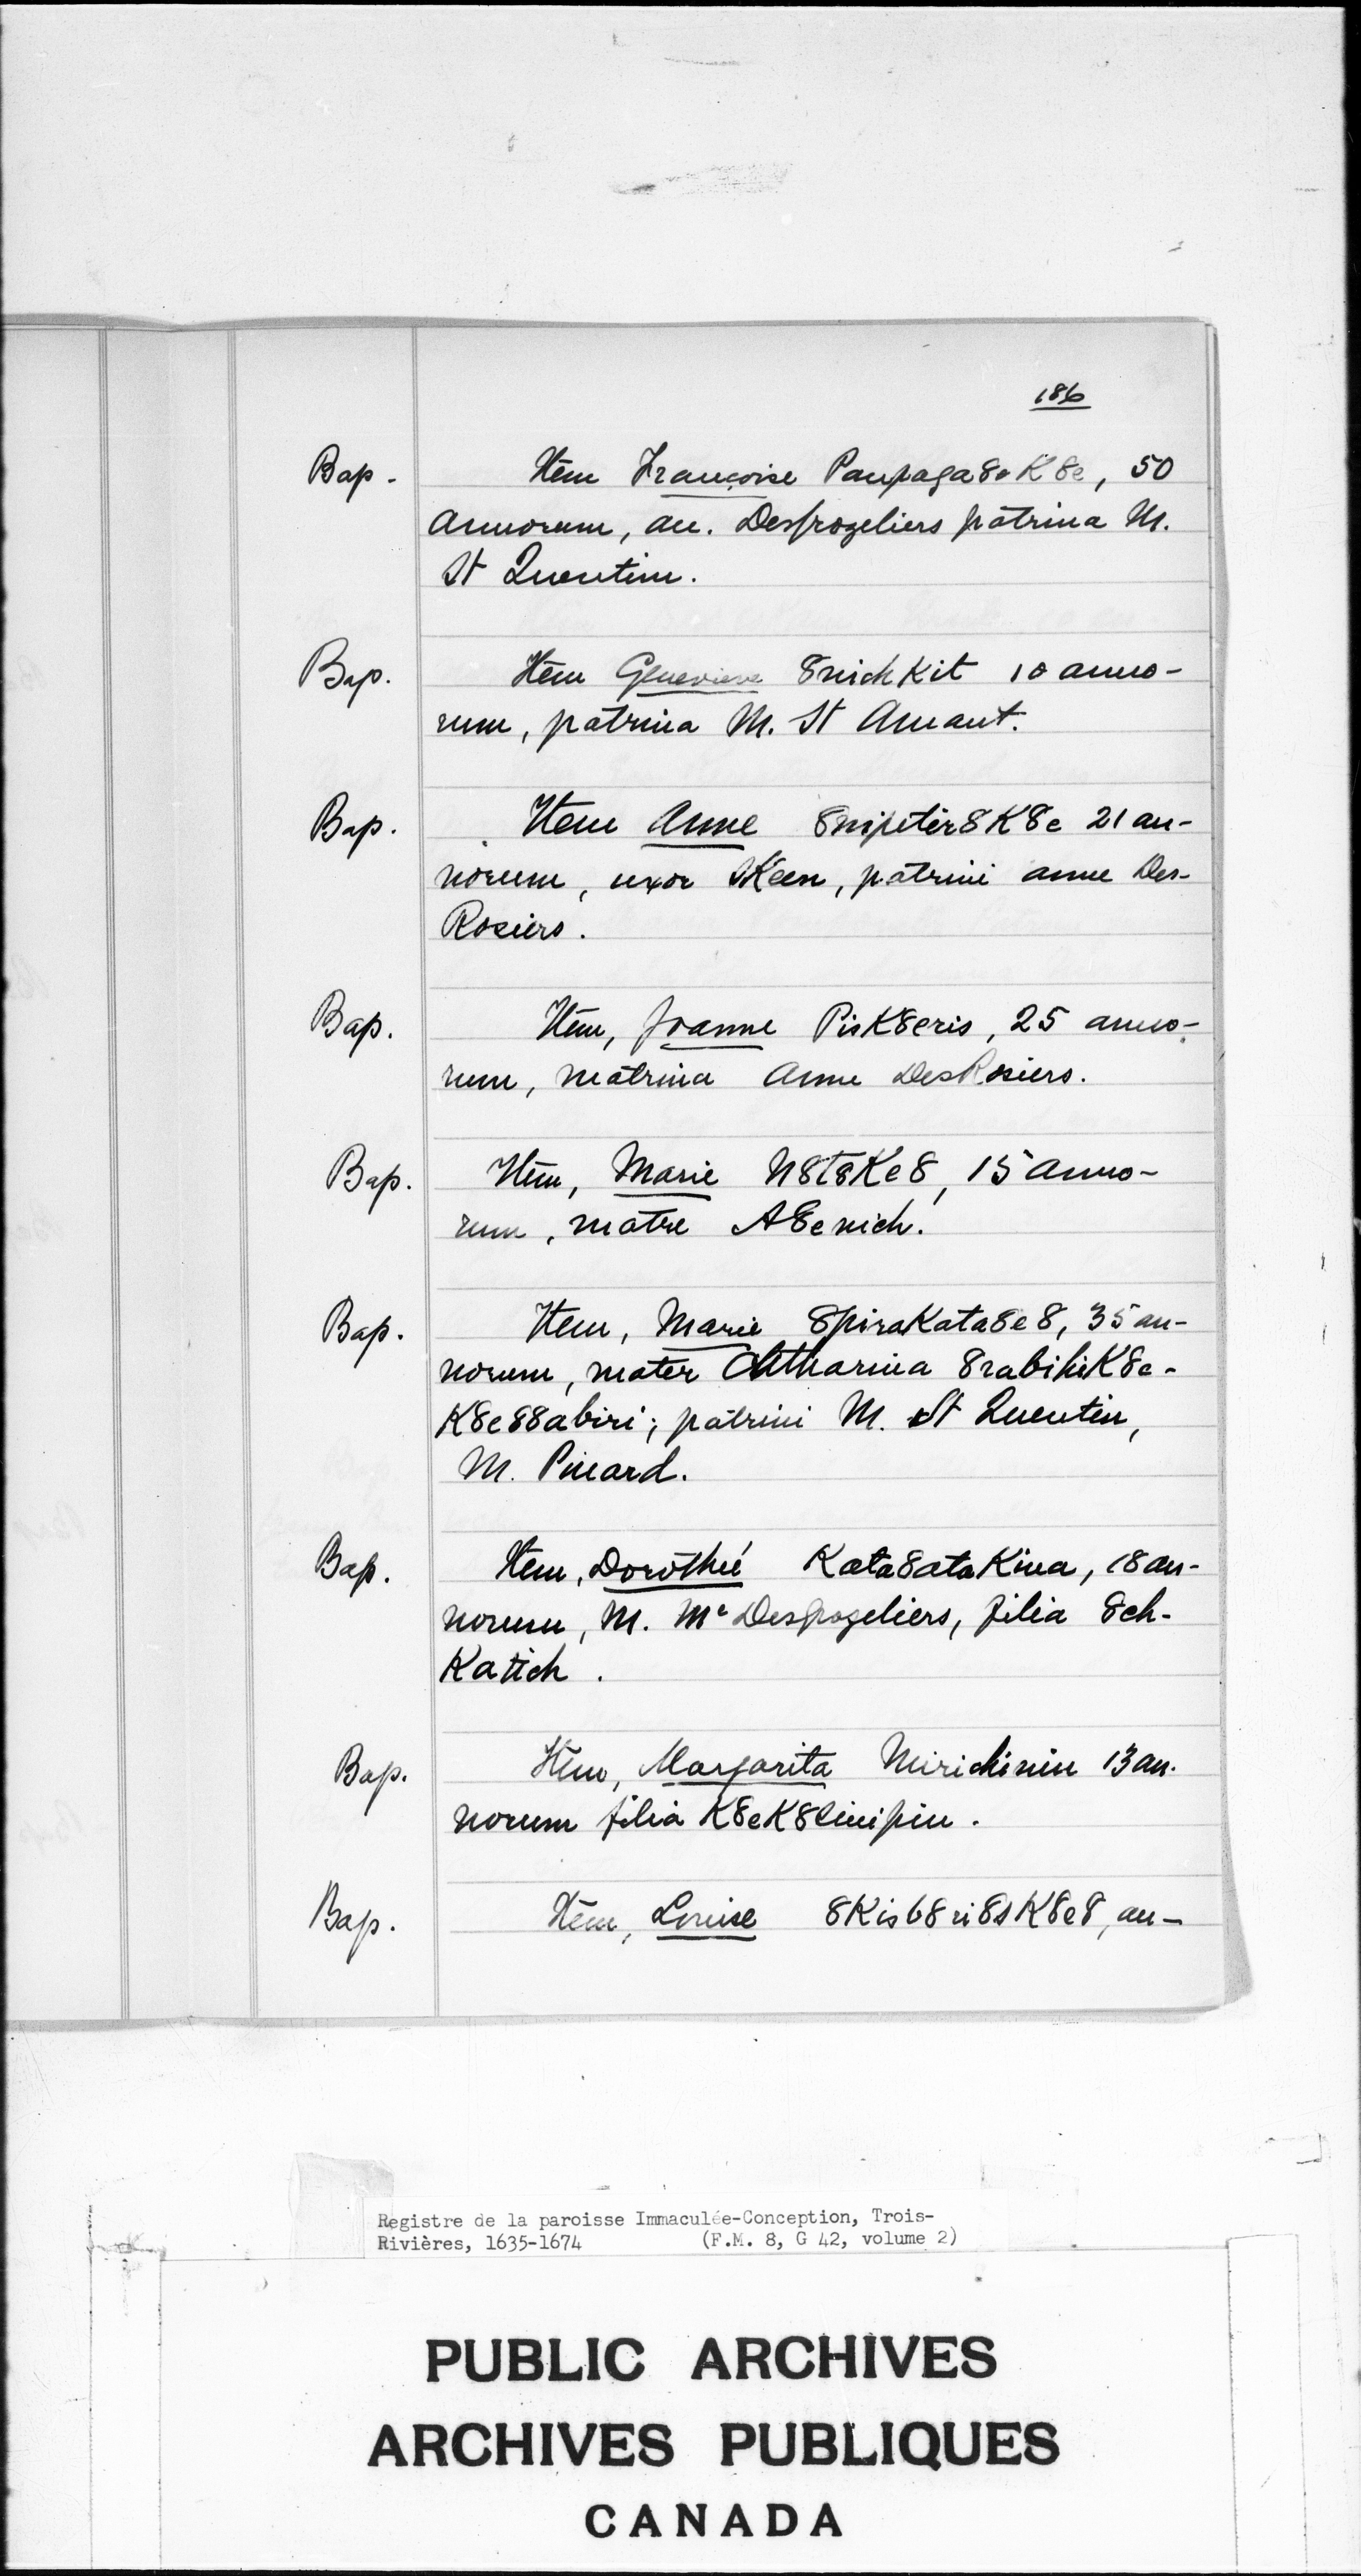 186
Bap. Item Françoise Paupaga8oK8e, 50
annorum, an. Desfrozeliers patrina M.
St Quentin.
Bap. Item Genevieve 8nichKit 10 anno-
rum, patrina M. St Amant.
Bap. Item Anne 8nipiter8K8e 21 an-
norum, uxor SKeen, patrini anne Des-
Rosiers.
Bap. Item, Joanne PisK8eris, 25 anno-
rum, matrina Anne DesRosiers.
Bap. Item, Marie N8t8Ke8, 15 anno-
rum, matre A8enich.
Bap. Item, Marie 8piraKata8e8, 35 an-
norum, mater Catharina 8rabihiK8e-
K8e88abiri; patrini M. St Quentin,
M. Pinard.
Bap. Item, Dorothée Kata8ataKina, 18 an-
norum, M. Me Desfrozeliers, filia 8ch-
Katich.
Bap. Item, Margarita Mirichinin 13 an-
norum filia K8eK8linipin.
Bap. Item, Louise 8Kis68ri8sK8e8, an-
Registre de la paroisse Immaculée-Conception, Trois-
Rivières, 1635-1674 (F.M. 8, G 42, volume 2)
PUBLIC ARCHIVES
ARCHIVES PUBLIQUES
CANADA